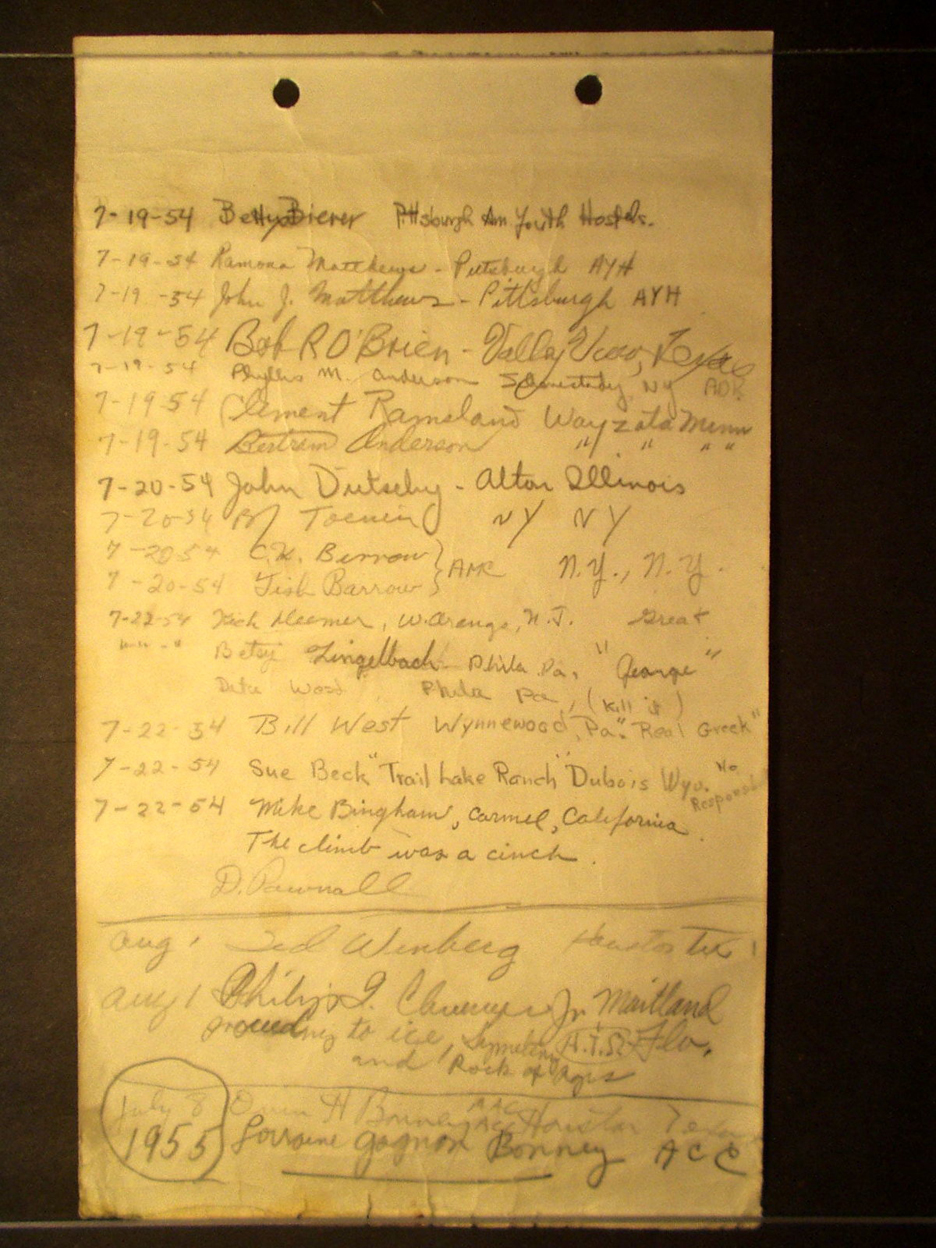 7-19-54 Betty Bierer Pittsburgh Am Youth Hostels.
7-19-54 Ramona Matthews - Pittsburgh AYH
7-19-54 John J. Matthews - Pittsburgh AYH
7-19-54 Bob R O'Brien - Valley View, Texas
7-19-54 Phyllis M. Anderson Schenectady, NY
7-19 54 Clement Ramsland Wayzata Minn
7-19-54 Bertram Anderson " " " "
7-20-54 John - Alton Illinois
7-20-54 NY NY
7-20 54 C.K. N.Y., N.Y.
7-20-54 Barrow
7-22-54 W. Orange, N.J. Great
" " - " Betsy Lingelbach - Phila. Pa, "George"
Wood Phila Pa, (Kill it)
7-22-54 Bill West Wynnewood, Pa. "Real Greek"
7-22-54 Sue Beck "Trail Lake Ranch" Dubois Wyo. "No
7-22-54 Mike Bingham, Carmel, California
The climb was a cinch.
D. Pownall
Aug 1 Ted Houston Tex
Aug 1 Philip G. Jr. Maitland
to ice, Fla.
and Rock of Ages
July 8 H Bonney AAC Houston Texas
1955 Lorraine Gagnon Bonney ACC